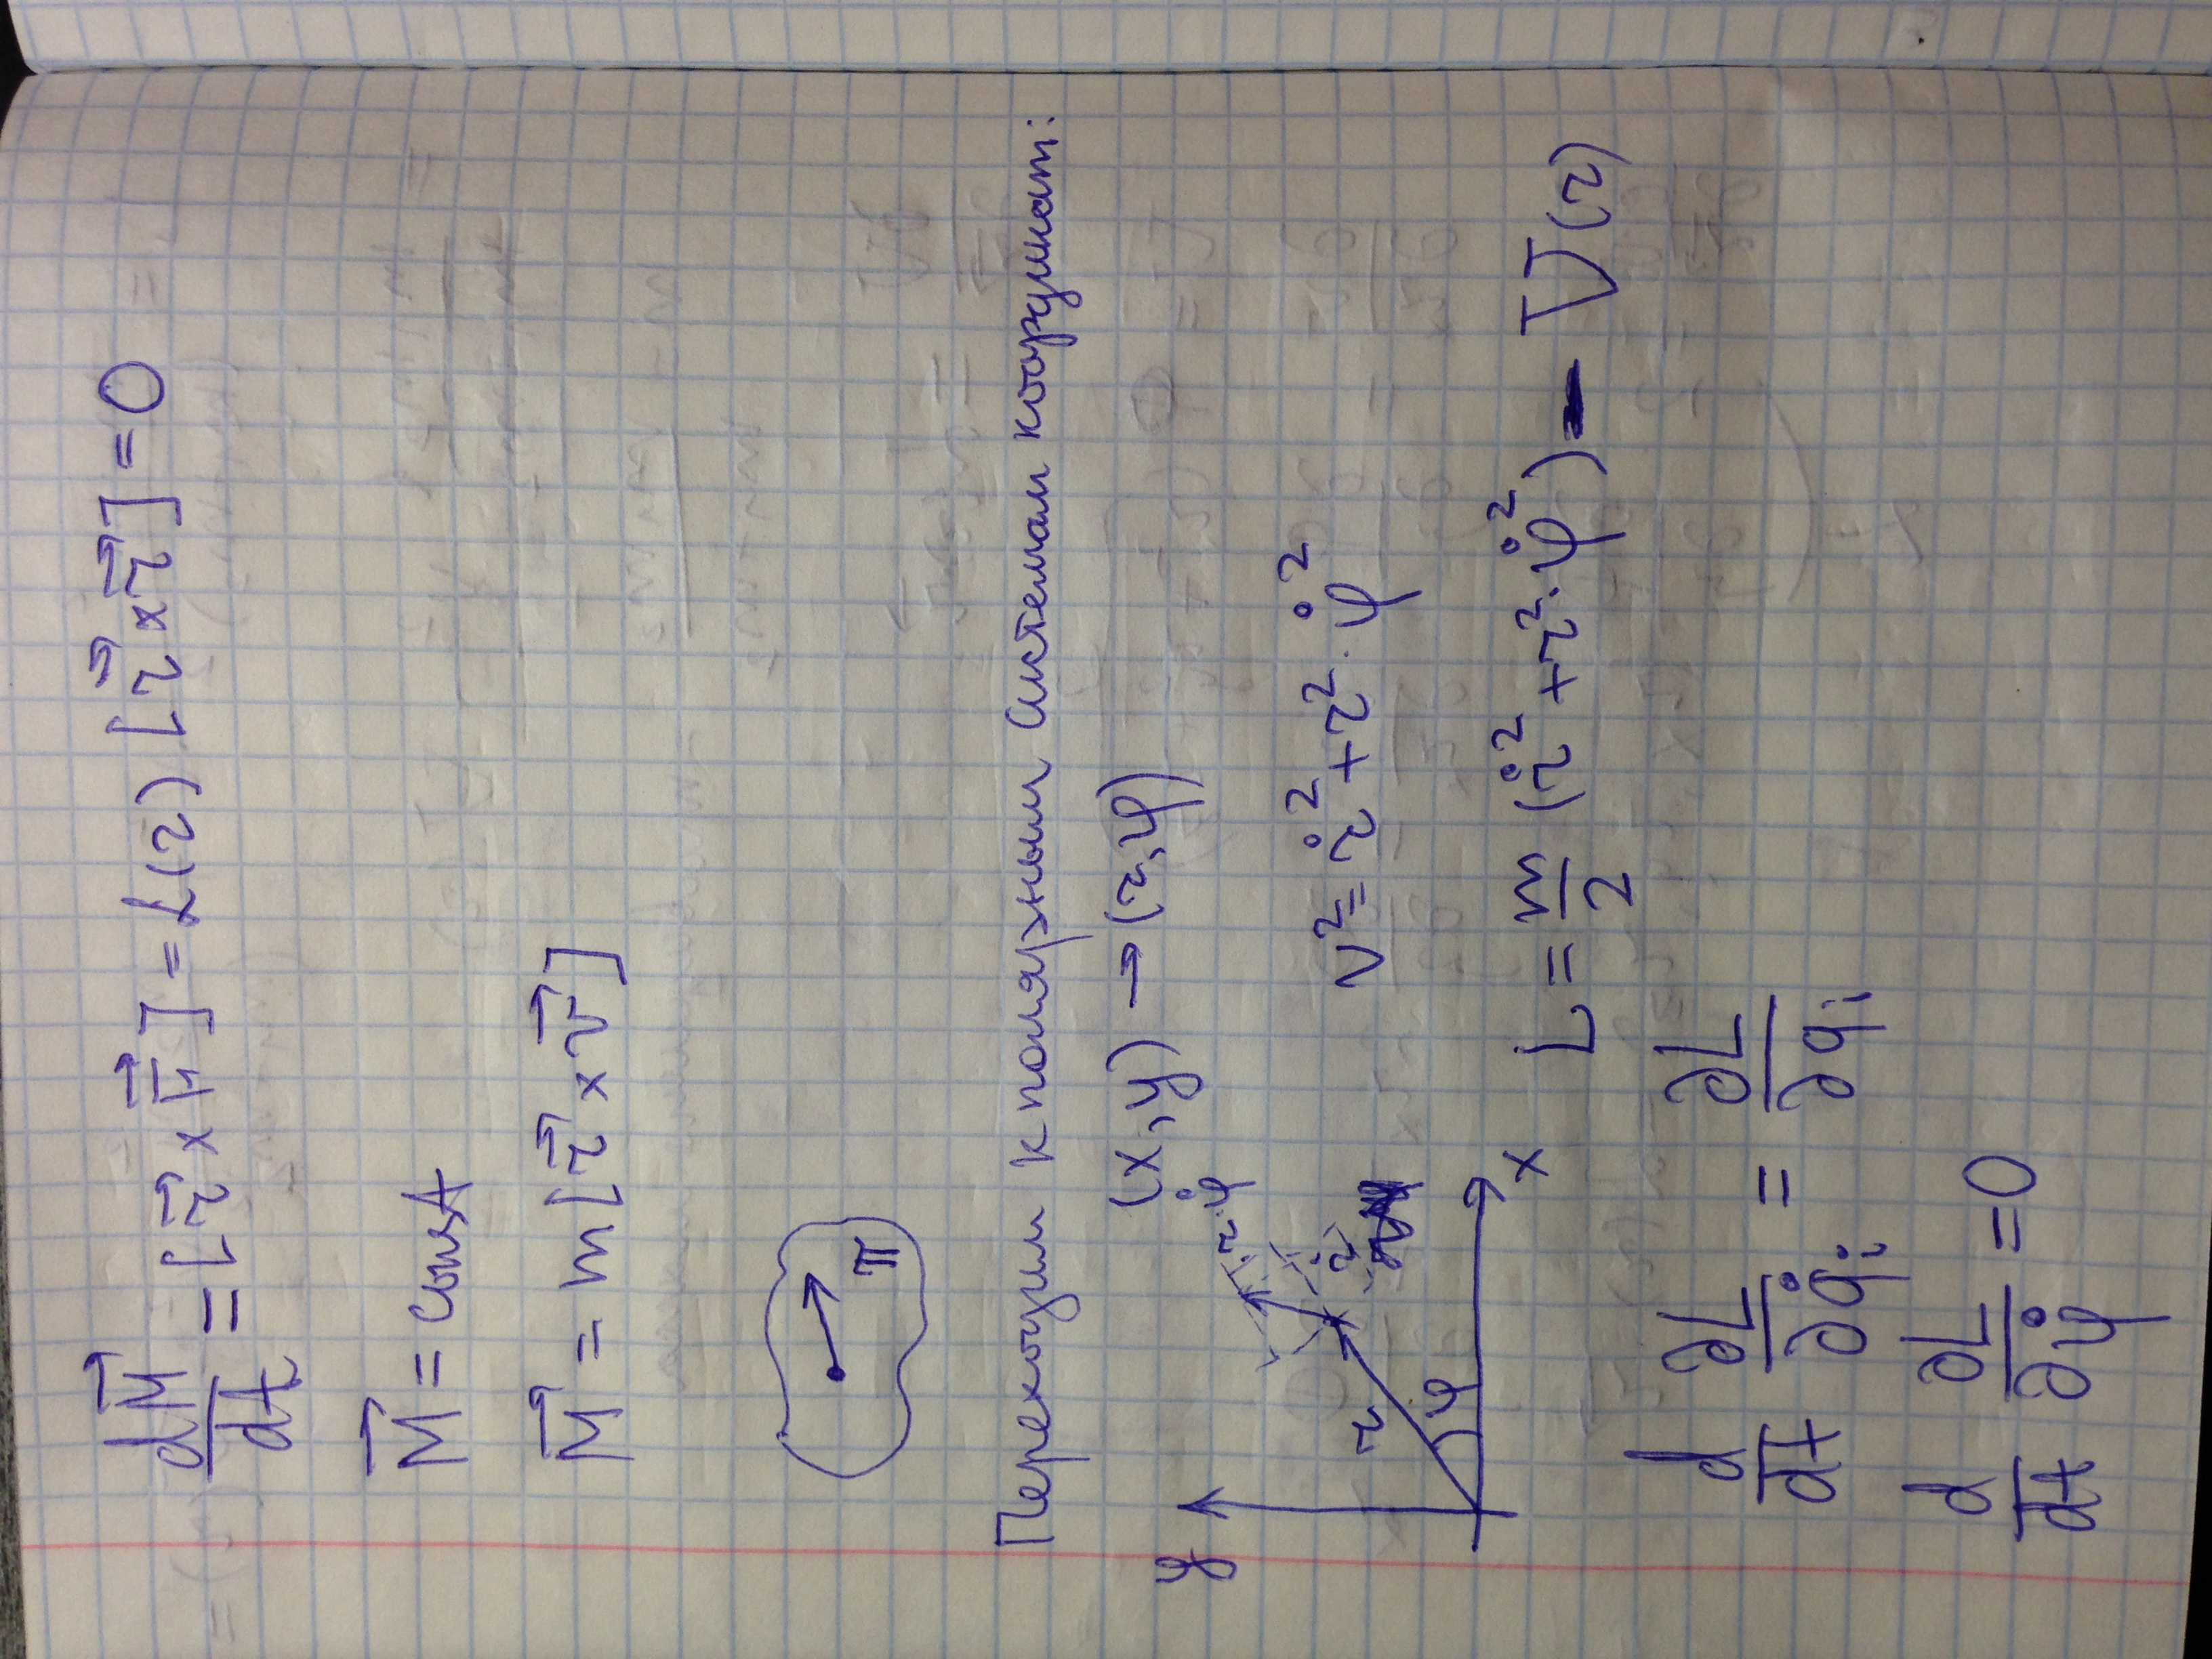 dM⃗/dt = [r⃗ × F⃗] = L(r) [r⃗ × r⃗] = 0
M⃗ = const
M⃗ = m [r⃗ × v⃗]
π
Переходим к полярным системам координат:
(x, y) → (r, φ)
y r·φ̇ ṙ r φ x
v² = ṙ² + r² · φ̇²
L = m/2 (ṙ² + r² · φ̇²) - U(r)
d/dt ∂L/∂q̇i = ∂L/∂qi
d/dt ∂L/∂φ̇ = 0